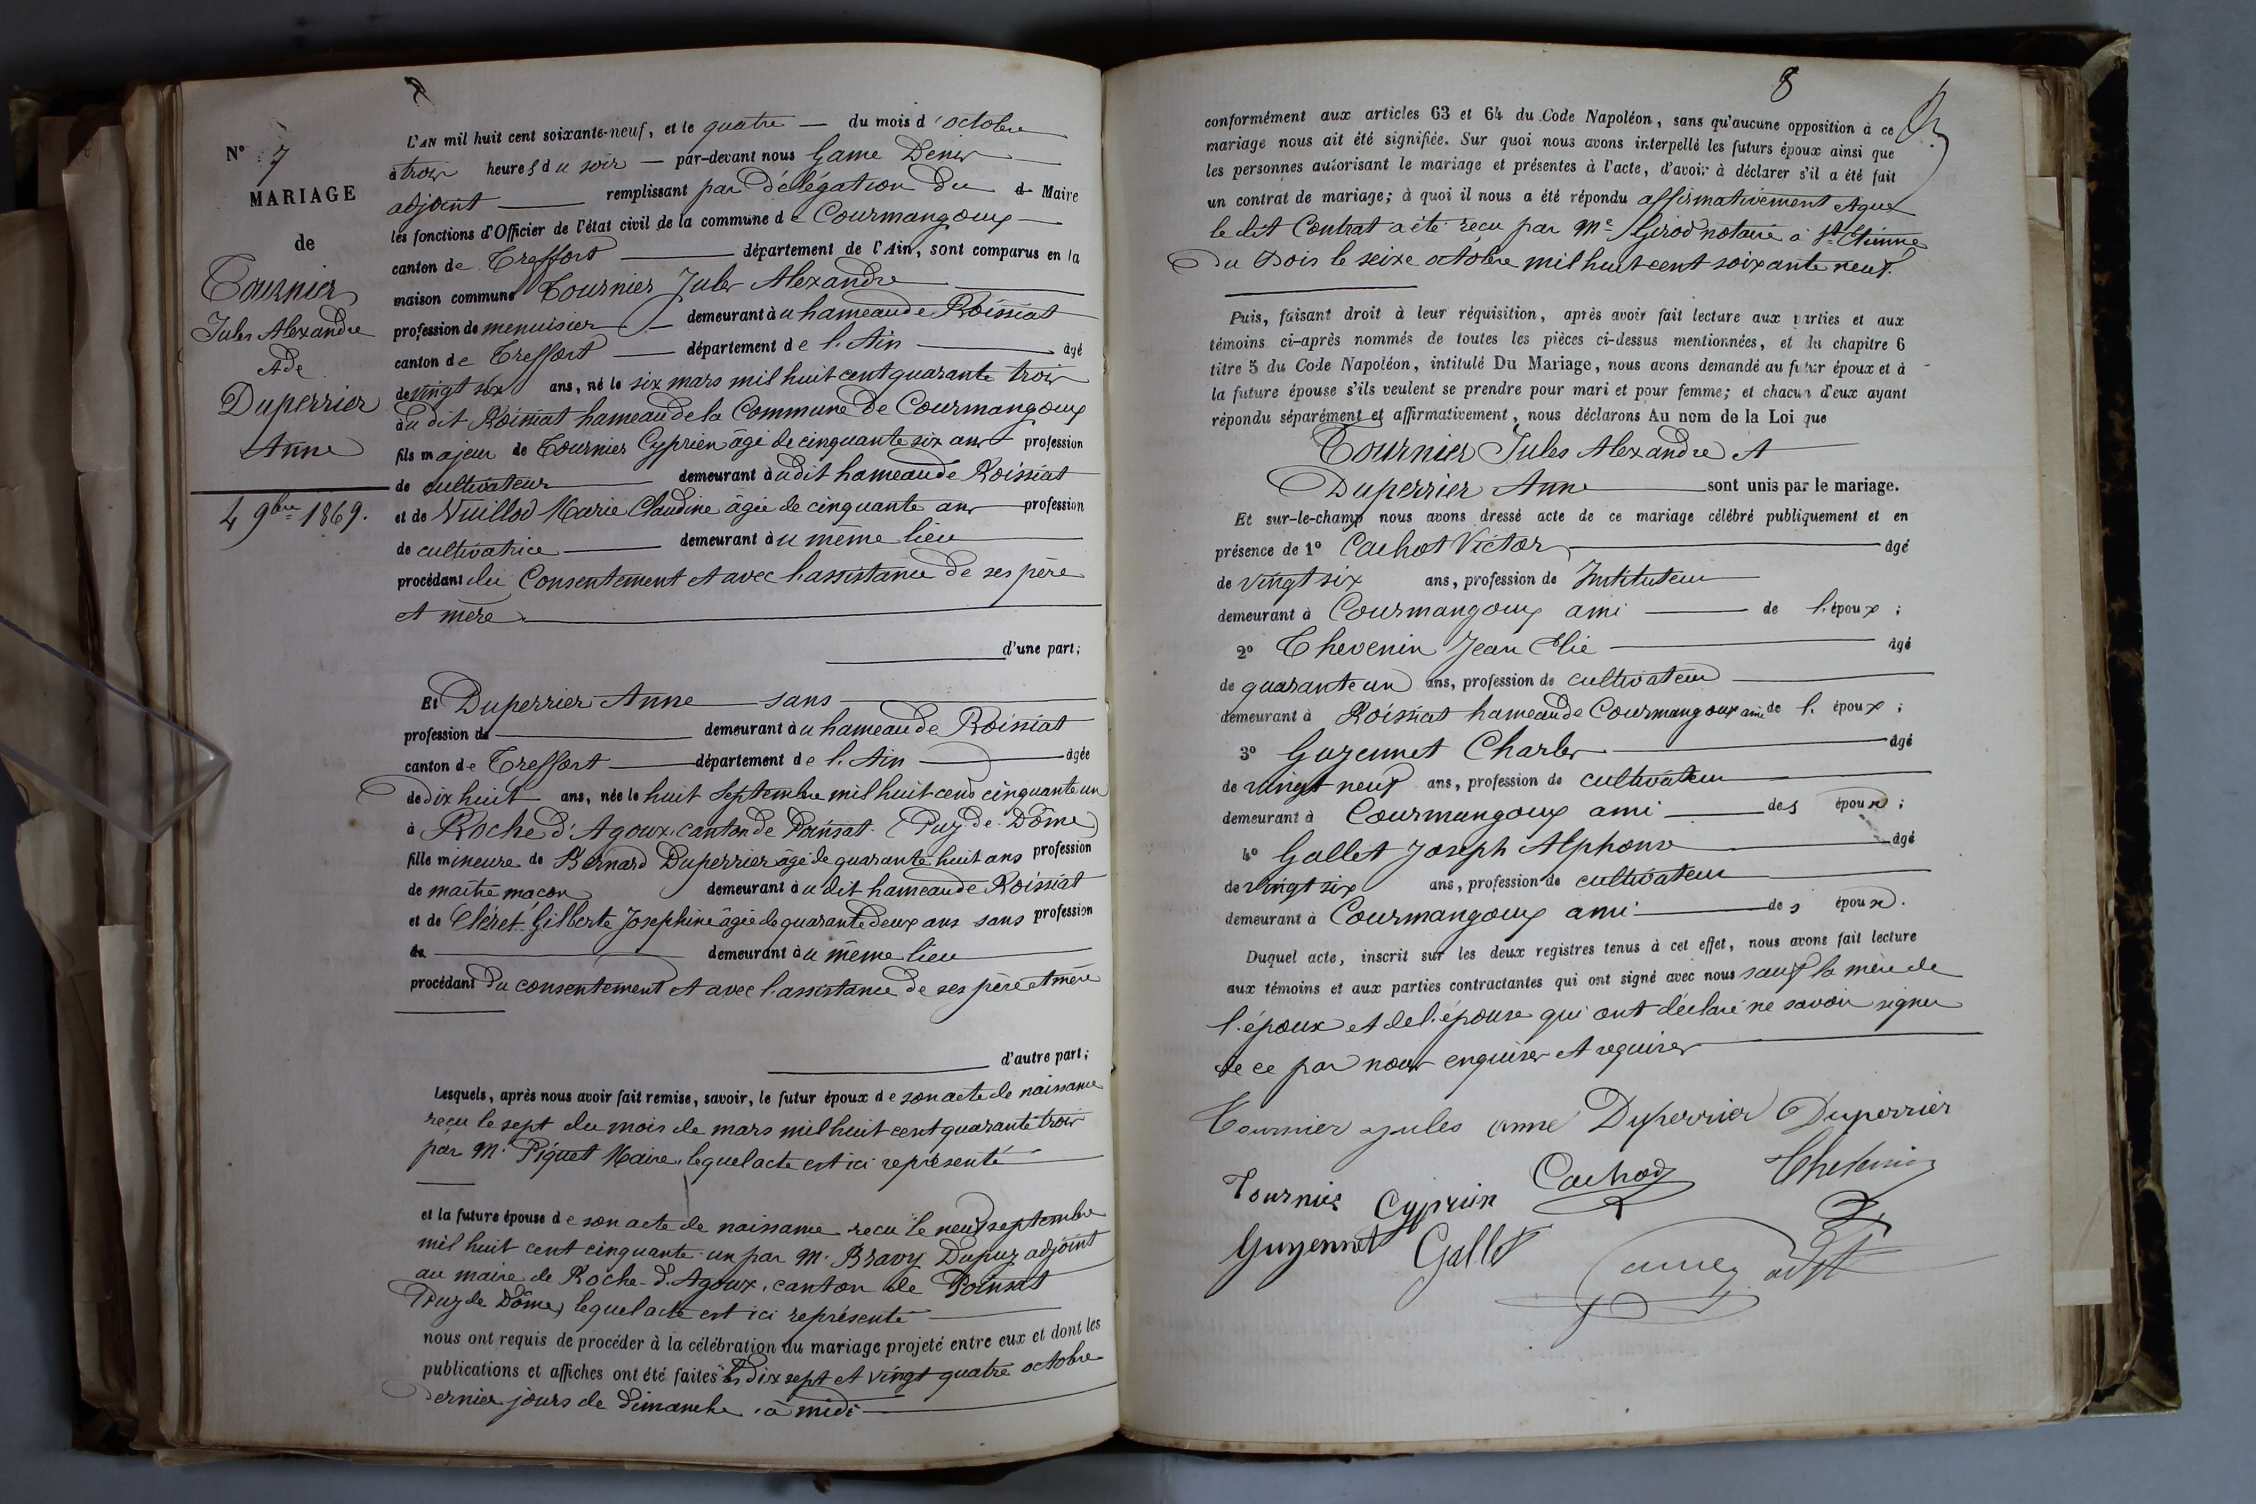 N° 7
MARIAGE
de
Tournier
Jules Alexandre
et de
Duperrier
Anne
4 9bre 1869.
L'AN mil huit cent soixante-neuf, et le quatre — du mois d'octobre
à trois heures du soir — par-devant nous Game Denis
adjoint remplissant par délégation du d Maire
les fonctions d'Officier de l'état civil de la commune de Courmangoux
canton de Treffort département de l'Ain, sont comparus en la
maison commune Tournier Jules Alexandre
profession de menuisier — demeurant au hameau de Roissiat
canton de Treffort département de l'Ain âgé
de vingt six ans, né le six mars mil huit cent quarante trois
au dit Roissiat hameau de la Commune de Courmangoux
fils majeur de Tournier Cyprien âgé de cinquante six ans profession
de cultivateur demeurant au dit hameau de Roissiat
et de Vuillod Marie Claudine âgée de cinquante ans profession
de cultivatrice demeurant au même lieu
procédant du Consentement et avec l'assistance de ses père
et mère
d'une part;
Et Duperrier Anne sans
profession de demeurant au hameau de Roissiat
canton de Treffort département de l'Ain âgée
de dix huit ans, née le huit Septembre mil huit cent cinquante un
à Roche d'Agoux canton de Poinsat (Puy de Dôme)
fille mineure de Bernard Duperrier âgé de quarante huit ans profession
de maître maçon demeurant au dit hameau de Roissiat
et de Cléret Gilberte Josephine âgée de quarante deux ans sans profession
de demeurant au même lieu
procédant du consentement et avec l'assistance de ses père et mère
d'autre part;
Lesquels, après nous avoir fait remise, savoir, le futur époux de son acte de naissance
reçu le sept du mois de mars mil huit cent quarante trois
par Mr Piquet Maire, lequel acte est ici représenté
et la future épouse de son acte de naissance reçu le neuf septembre
mil huit cent cinquante un par Mr Bravy Dupuy adjoint
au maire de Roche-d'Agoux, canton de Poinsat
(Puy de Dôme) lequel acte est ici représenté
nous ont requis de procéder à la célébration du mariage projeté entre eux et dont les
publications et affiches ont été faites les dix sept et vingt quatre octobre
dernier jours de dimanche, à midi
8
conformément aux articles 63 et 64 du Code Napoléon, sans qu'aucune opposition à ce
mariage nous ait été signifiée. Sur quoi nous avons interpellé les futurs époux ainsi que
les personnes autorisant le mariage et présentes à l'acte, d'avoir à déclarer s'il a été fait
un contrat de mariage; à quoi il nous a été répondu affirmativement et que
le dit Contrat a été reçu par Me Girod notaire à St Etienne
Du Bois le seize octobre mil huit cent soixante neuf.
Puis, faisant droit à leur réquisition, après avoir fait lecture aux parties et aux
témoins ci-après nommés de toutes les pièces ci-dessus mentionnées, et du chapitre 6
titre 5 du Code Napoléon, intitulé Du Mariage, nous avons demandé au futur époux et à
la future épouse s'ils veulent se prendre pour mari et pour femme; et chacun d'eux ayant
répondu séparément et affirmativement, nous déclarons Au nom de la Loi que
Tournier Jules Alexandre et
Duperrier Anne sont unis par le mariage.
Et sur-le-champ nous avons dressé acte de ce mariage célébré publiquement et en
présence de 1° Cachot Victor âgé
de vingt six ans, profession de Instituteur
demeurant à Courmangoux ami de l'époux;
2° Thevenin Jean Elie âgé
de quarante un ans, profession de cultivateur
demeurant à Roissiat hameau de Courmangoux ami de l'époux;
3° Guyennet Charles âgé
de vingt neuf ans, profession de cultivateur
demeurant à Courmangoux ami des époux;
4° Gallet Joseph Alphonse âgé
de vingt six ans, profession de cultivateur
demeurant à Courmangoux ami des époux.
Duquel acte, inscrit sur les deux registres tenus à cet effet, nous avons fait lecture
aux témoins et aux parties contractantes qui ont signé avec nous sauf la mère de
l'époux et de l'épouse qui ont déclaré ne savoir signer
de ce par nous enquises et requises
Tournier jules anne Duperrier Duperrier
Tournier Cyprien Cachod Thevenin
Guyennet Gallet Game adjt